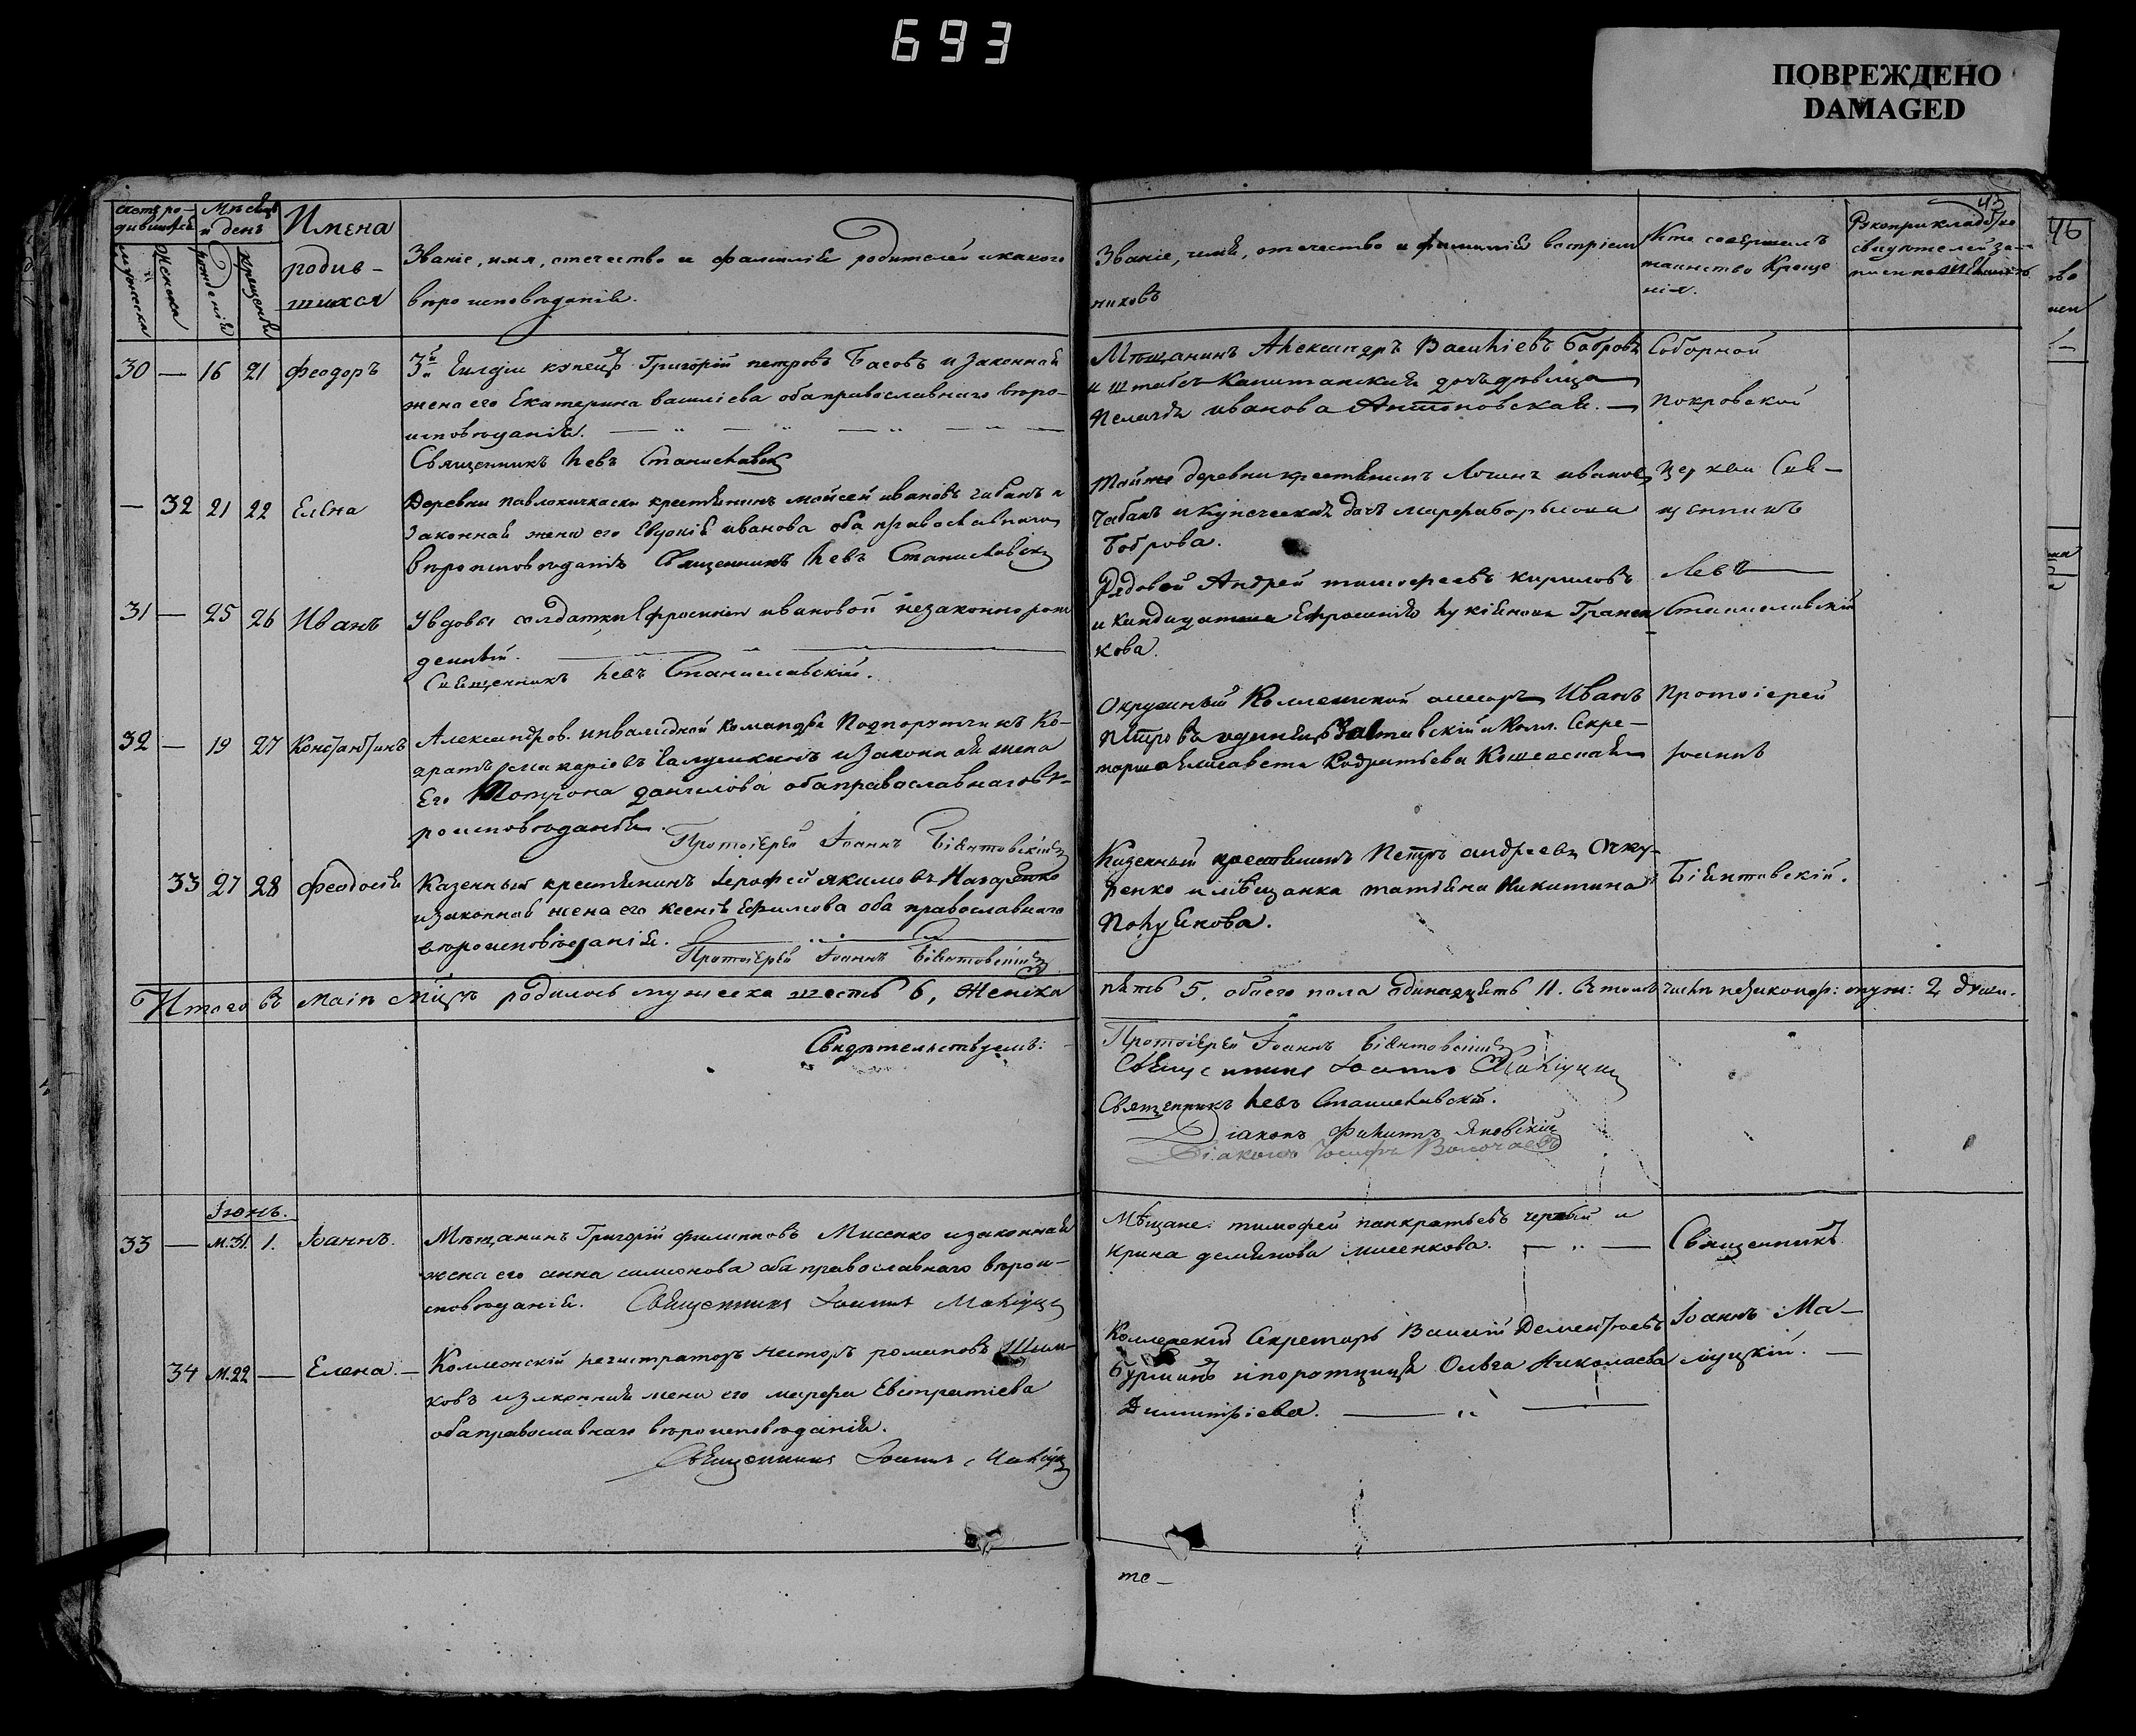 693
ПОВРЕЖДЕНО
DAMAGED
43
46
Мѣсяцъ и день
Имена родив-
шихся
Званіе, имя, отечество и фамилія родителей и какого
вѣроисповѣданія.
Званіе, имя, отечество и фамилія воспріем
никовъ
Кто совершалъ
таинство Креще
нія.
Рукоприкладство
свидѣтелей за-
писи по желанію
30 — 16 21 Феодоръ
3й Гилдіи купецъ Григорій петровъ Басовъ и законная
жена его Екатерина василіева оба православнаго вѣро-
исповѣданія.
Священникъ Левъ Станиславскій
Мѣщанинъ Александръ Василіевъ Бобровъ
и штабсъ Капитанская дочь дѣвица
Пелагія иванова Антоновская. —
Соборной
Покровской
— 32 21 22 Елена
Деревни павлокичкаски крестьянинъ мойсей ивановъ чабанъ и
законная жена его Евдокія иванова оба православнаго
вѣроисповѣданія Священникъ Левъ Станиславскій
Тойже деревни крестьянинъ Логинъ ивановъ
Чабанъ и купеческая дочь марфа борисова
Боброва.
церкви Свя-
щенникъ
31 — 25 26 Иванъ
У вдовы солдатки Ефросиніи ивановой незаконнорож
денный.
Священникъ Левъ Станиславскій.
Рядовой Андрей тимофеевъ кириловъ
и кандидатша Ефросинія лукіянова
кова.
Левъ —
Станиславскій
32 — 19 27 Константинъ
Александров. инвалидной команды Подпоручикъ Ко-
дратъ макаріевъ Галушкинъ и законная жена
Его Матрона данилова оба православнаго вѣ-
роисповѣданія.
Протоіерей Іоаннъ Біянтовскій
Окружный Коллежской асесоръ Иванъ
Петровъ и Колл. Секре-
тарша Елисавета Кодратьева
Протоіерей
Іоаннъ
33 27 28 Феодосія
Казенный крестьянинъ Іерофей якимовъ Назаренко
и законная жена его ксенія Ефимова оба православнаго
вѣроисповѣданія.
Протоіерей Іоаннъ Біянтовскій
Казенный крестьянинъ Петръ андреевъ Очку-
ренко и мѣщанка татіяна Никитина
Полуянова.
Біянтовскій.
Итого въ маіѣ мцѣ родилось мужеска шесть 6, Женска
пять 5. обоего пола одинадцять 11. въ томъ числѣ незаконор: муж: 2 души.
Свидѣтельствуемъ:
Протоіерей Іоаннъ Біянтовскій
Священникъ Іоаннъ Малиуцкій
Священникъ Левъ Станиславскій.
Діаконъ Филипъ Яновскій
Діаконъ Іосифъ
Іюнь.
33 — М.31. 1. Іоаннъ.
Мѣщанинъ Григорій филиповъ Мисенко и законная
жена его анна симеонова оба православнаго вѣрои-
сповѣданія. Священникъ Іоаннъ
Мѣщане: тимофей панкратьевъ черный и
ирина демянова мисенкова.
Священникъ
34 М.22 — Елена. —
Коллежскій регистраторъ несторъ романовъ
ковъ и законная жена его марфа Евстратіева
оба православнаго вѣроисповѣданія.
Священникъ Іоаннъ
Коллежскій Секретарь Василій Дементьевъ
Ольга Николаева
Димитріева.
Іоаннъ Ма-
люцкій. —
те —